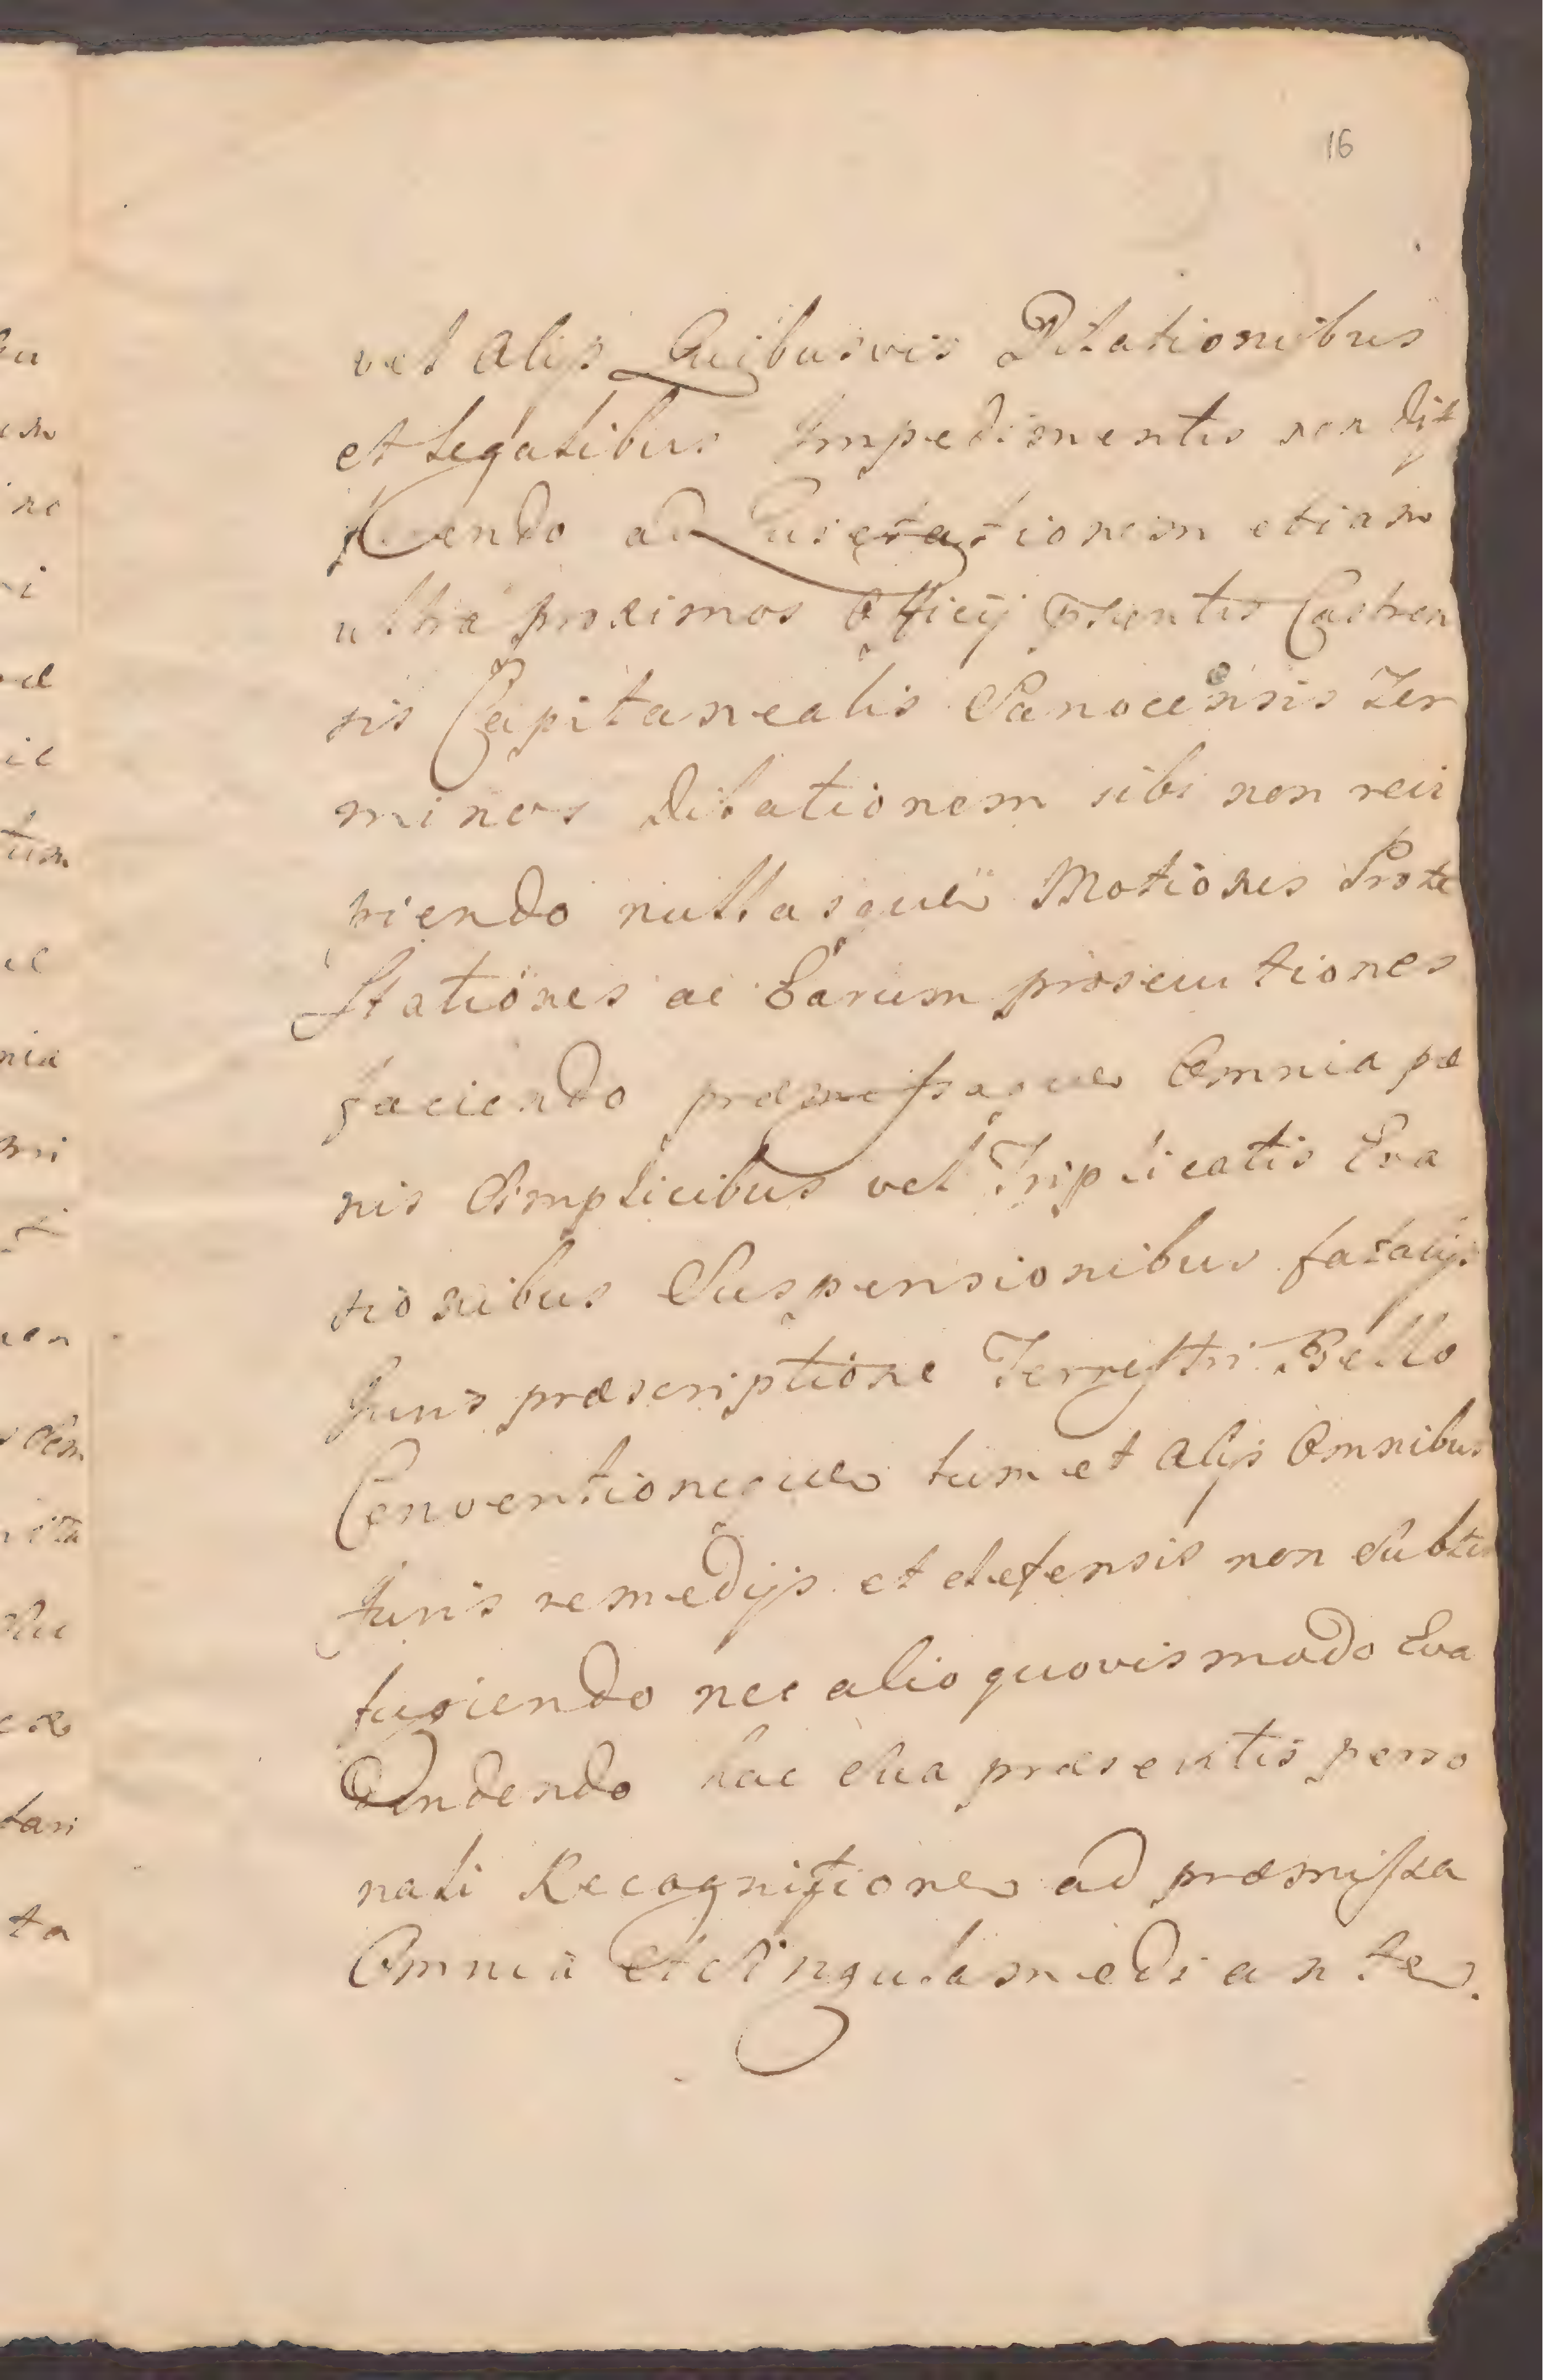 16
vel Alijs Quibusvis Dilationibus
et Legalibus Impedimentis non dif
ferendo ad Quietationem etiam
ultra proximos Officij pntis Castren
sis Capitanealis Sanocensis Ter
minos Dilationem sibi non reci
piendo nullasque Motiones Prote
stationes ac Earum prosecutiones
faciendo præmissaque Omnia pœ
nis Simplicibus vel Triplicatis Eva
sionibus Suspensionibus fatalijs
Juris præscriptione Terrestri Bello
Conventioneque tum et Alijs Omnibus
Juris remedijs et defensis non Subter
fugiendo nec alio quovismodo Eva
dendendo hac Sua præsentis perso
nali Recognitione ad præmissa
Omnia Et Singula mediante.